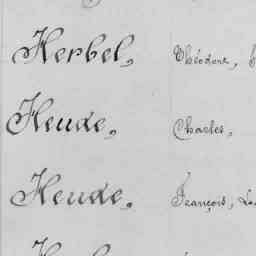 Herbel, Théodore,
Heude, Charles,
Heude, François,